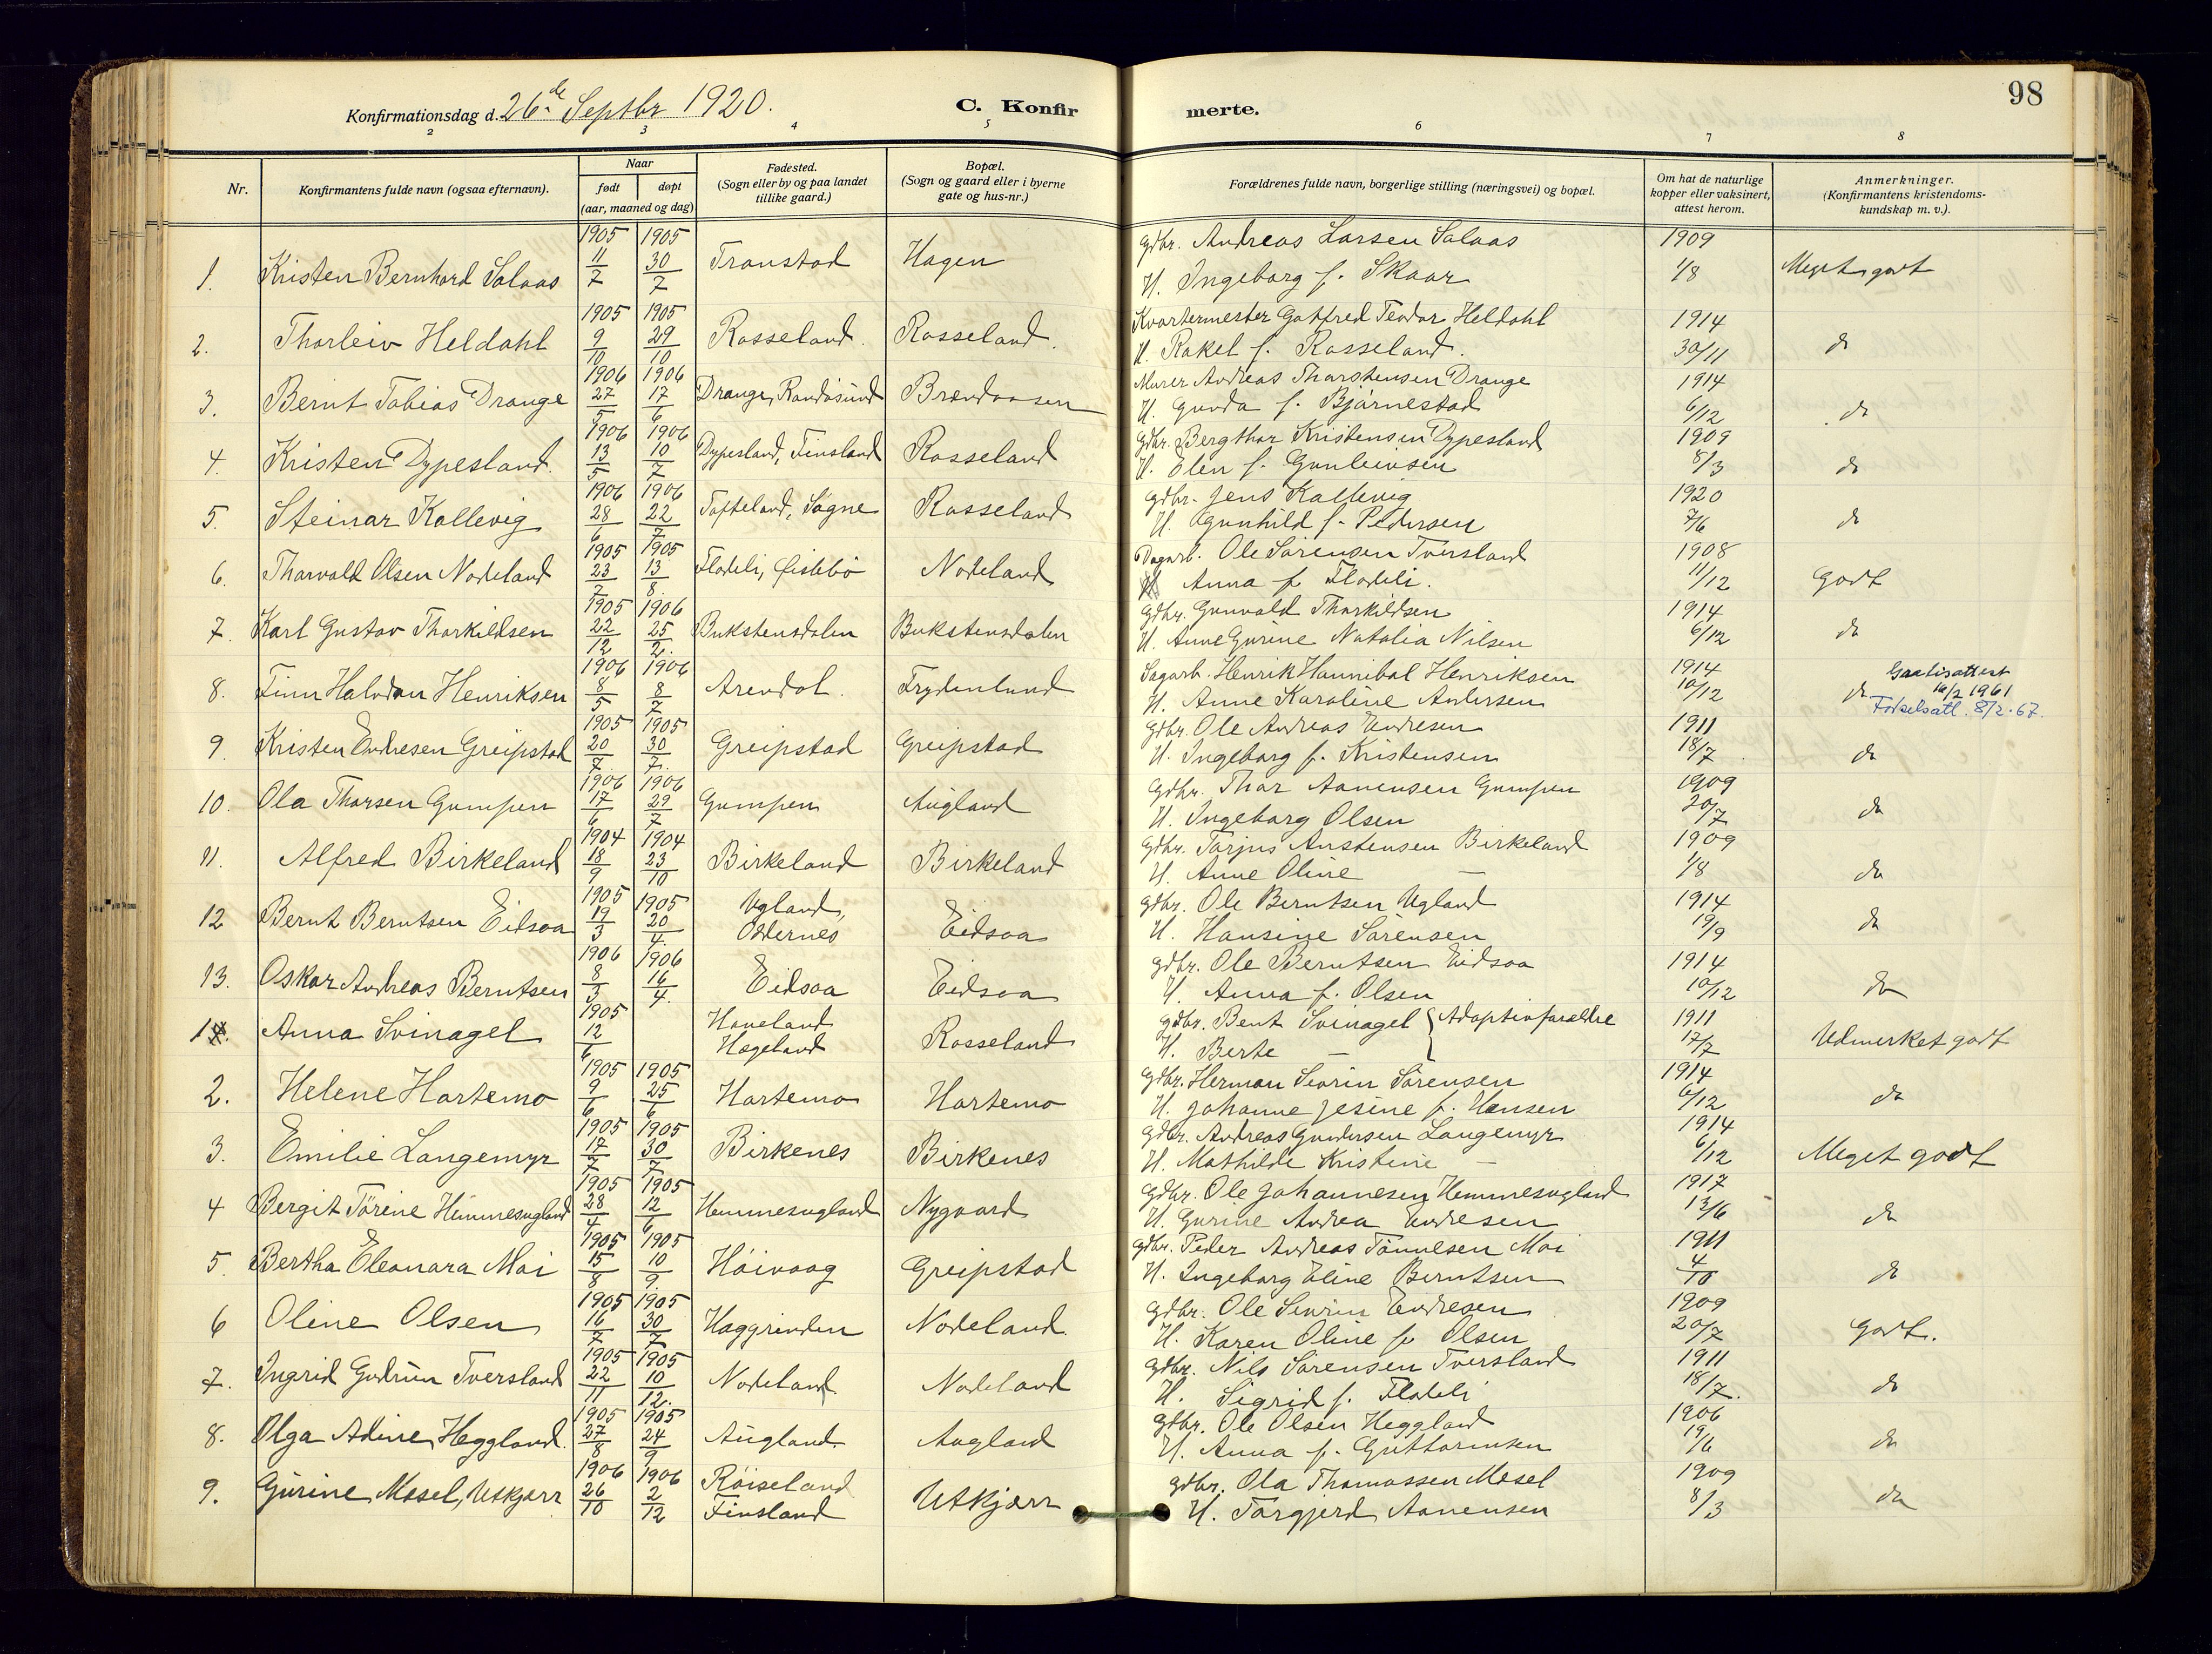 98
Konfirmationsdag d. 26de Septbr 1920.
C. Konfirmerte.
2 3 4 5 6 7 8
Nr. Konfirmantens fulde navn (ogsaa efternavn). Naar født døpt (aar, maaned og dag) Fødested. (Sogn eller by og paa landet tillike gaard.) Bopæl. (Sogn og gaard eller i byerne gate og hus-nr.) Forældrenes fulde navn, borgerlige stilling (næringsvei) og bopæl. Om hat de naturlige kopper eller vaksinert, attest herom. Anmerkninger. (Konfirmantens kristendoms-kundskap m. v.).
1. Kristen Bernhard Salaas 1905 11/7 1905 30/7 Tronstad Hagen Gdbr. Andreas Larsen Salaas 1909
H. Ingeborg f. Skaar 1/8 Meget godt
2. Thorleiv Heldahl 1905 9/10 1905 29/10 Rosseland. Rosseland. Kvartermester Gotfred Teodor Heldahl 1914
H. Rakel f. Rosseland. 30/11 do
3. Bernt Tobias Drange 1906 27/5 1906 17/6 Drange, Randøsund Brendaasen Murer Andreas Thorstensen Drange 1914
H. Gunda f. Bjørnestad 6/12 do
4. Kristen Dypesland. 1906 13/5 1906 10/7 Dypesland, Finsland Rosseland Gdbr. Bergthor Kristensen Dypesland 1909
H. Elen f. Gunleivsen 8/3 do
5. Steinar Kallevig 1906 28/6 1906 22/7 Tofteland, Søgne Rosseland Gdbr. Jens Kallevig 1920
H. Gunhild f. Pedersen 7/6 do
6. Thorvald Olsen Nodeland 1905 23/7 1905 13/8. Flodeli, Øislebø Nodeland Dagarb. Ole Sørensen Tversland 1908
H. Anna f. Flodeli. 11/12 Godt
7. Karl Gustav Thorkildsen 1905 22/12 1906 25/2. Bukstensdalen Bukstensdalen Gdbr. Gunvald Thorkildsen 1914
H. Anne Gurine Natalia Nilsen 6/12 do
8. Finn Halvdan Henriksen 1906 8/5 1906 8/7 Arendal. Frydenlund Sagarb. Henrik Hannibal Henriksen 1914
H. Anne Karoline Andersen 10/12 do Gratisattest 16/2 1961
Fødselsatt. 8/2-67.
9. Kristen Endresen Greipstad 1905 20/7 1905 30/7. Greipstad Greipstad Gdbr. Ole Andreas Endresen 1911
H. Ingeborg f. Kristensen 18/7 do
10. Ola Thorsen Gumpen 1906 17/6 1906 29/7 Gumpen Augland Gdbr. Thor Aanensen Gumpen 1909
H. Ingeborg Olsen 20/7 do
11. Alfred Birkeland 1904 18/9 1904 23/10 Birkeland Birkeland Gdbr. Torjus Anstensen Birkeland 1909
H. Anne Oline — 1/8 do
12 Bernt Berntsen Eidsaa 1905 19/3 1905 20/4. Ugland, Oddernes Eidsaa Gdbr. Ole Berntsen Ugland 1914
H. Hansine Sørensen 19/9 do
13. Oskar Andreas Berntsen 1906 8/3 1906 16/4. Eidsaa Eidsaa Gdbr. Ole Berntsen Eidsaa 1914
H. Anna f. Olsen 10/12 do
1. Anna Svinagel 1905 12/6 Haveland Hægeland Rosseland Gdbr. Bent Svinagel } Adoptivforældre 1911
H. Berte — 17/7 Udmerket godt
2. Helene Hortemo 1905 9/6 1905 25/6 Hortemo Hortemo Gdbr. Herman Severin Sørensen 1914
H. Johanne Jesine f. Hansen 6/12 do
3. Emilie Langemyr 1905 17/7 1905 30/7 Birkenes Birkenes Gdbr. Andreas Gundersen Langemyr 1914
H. Mathilde Kristine — 6/12 Meget godt
4 Bergit Tørine Hemmesugland 1905 28/4 1905 12/6 Hemmesugland Nygaard Gdbr. Ole Johannesen Hemmesugland 1917
H. Gurine Andrea Endresen 13/6 do
5. Bertha Eleonora Moi 1905 15/8 1905 10/9. Høivaag Greipstad Gdbr. Peder Andreas Tønnesen Moi 1911
H. Ingeborg Eline Berntsen 4/10 do
6 Oline Olsen 1905 16/7 1905 30/7 Haggrinden Nodeland. Gdbr. Ole Severin Endresen 1909
H. Karen Oline f. Olsen 20/7 Godt.
7. Ingrid Gudrun Tversland 1905 22/11 1905 10/12. Nodeland Nodeland Gdbr. Nils Sørensen Tversland 1911
H. Sigrid f. Flodeli 18/7. do
8. Olga Adine Heggland. 1905 27/8 1905 24/9 Augland Augland Gdbr. Ole Olsen Heggland 1906
H. Anna f. Guttormsen 19/6 do
9. Gurine Mosel, Utkjærr 1906 26/10 1906 2/12 Røiseland Finsland Utkjærr Gdbr. Ola Thomassen Mosel 1909
H. Torgjerd Aanensen 8/3 do